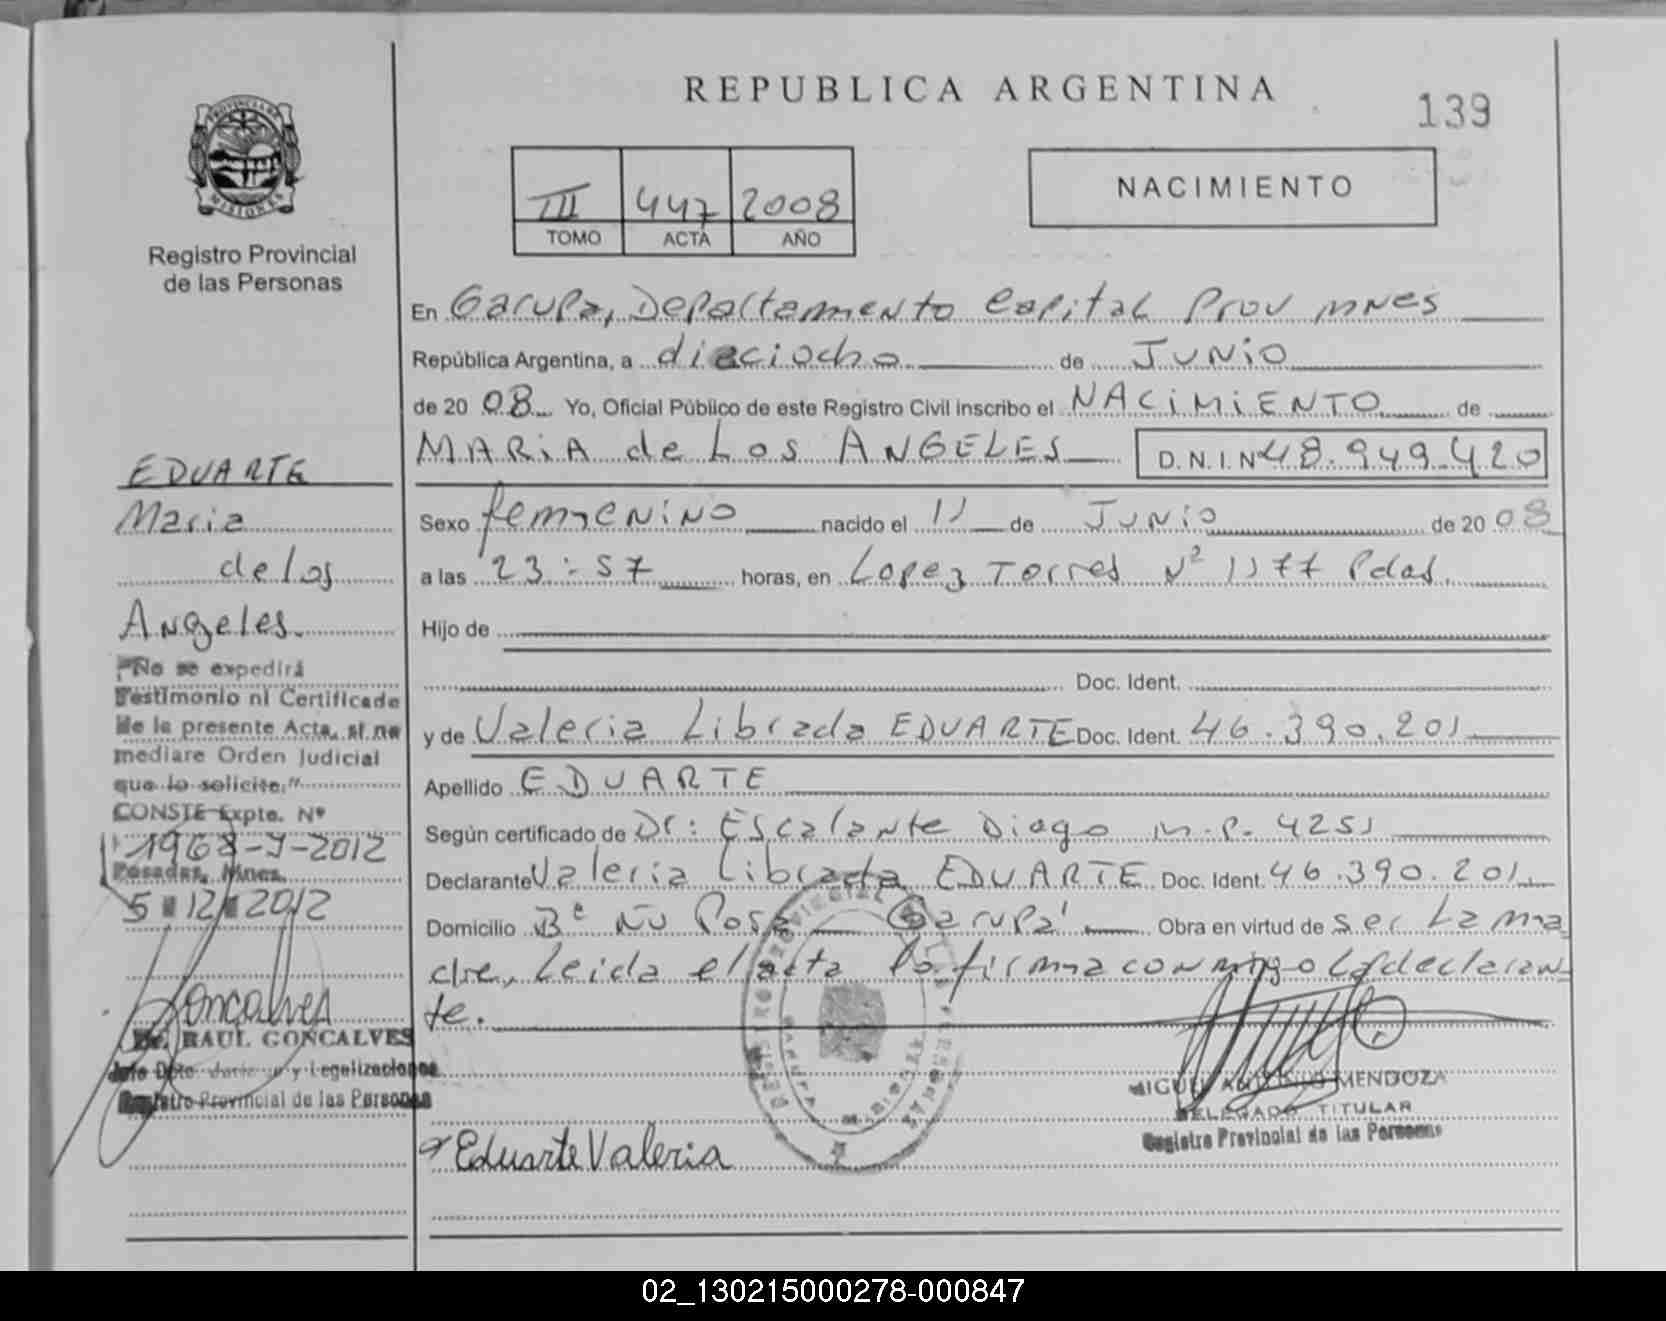 REPUBLICA ARGENTINA
139
PROVINCIA DE
MISIONES
Registro Provincial
de las Personas
III 447 2008
TOMO ACTA AÑO
NACIMIENTO
En Garupa, Departamento Capital Prov mnes
República Argentina, a dieciocho de JUNIO
de 20 08 Yo, Oficial Público de este Registro Civil inscribo el NACIMIENTO de
MARIA de Los ANGELES D.N.I. Nº 48.949.420
Sexo femenino nacido el 11 de JUNIO de 20 08
a las 23:57 horas, en Lopez Torres Nº 1177 Pdas.
Hijo de
Doc. Ident.
y de Valeria Librada EDUARTE Doc. Ident. 46.390.201
Apellido EDUARTE
Según certificado de Dr: Escalante Diago M.P. 4251
Declarante Valeria Librada EDUARTE Doc. Ident. 46.390.201
Domicilio Bº Ñu Pora Garupa' Obra en virtud de ser La ma
dre, Leida el acta la firma conmigo La declaran
te.
EDUARTE
Maria
de los
Angeles
"No se expedirá
Testimonio ni Certificado
de la presente Acta, si no
mediare Orden Judicial
que lo solicite."
CONSTE Expte. Nº
1968-J-2012
Posadas, Mnes.
5 12 2012
Goncalves
Dr. RAUL GONCALVES
Jefe Dpto. y Legalizaciones
Registro Provincial de las Personas
Eduarte Valeria
MIGUEL MENDOZA
DELEGADO TITULAR
Registro Provincial de las Personas
02_130215000278-000847